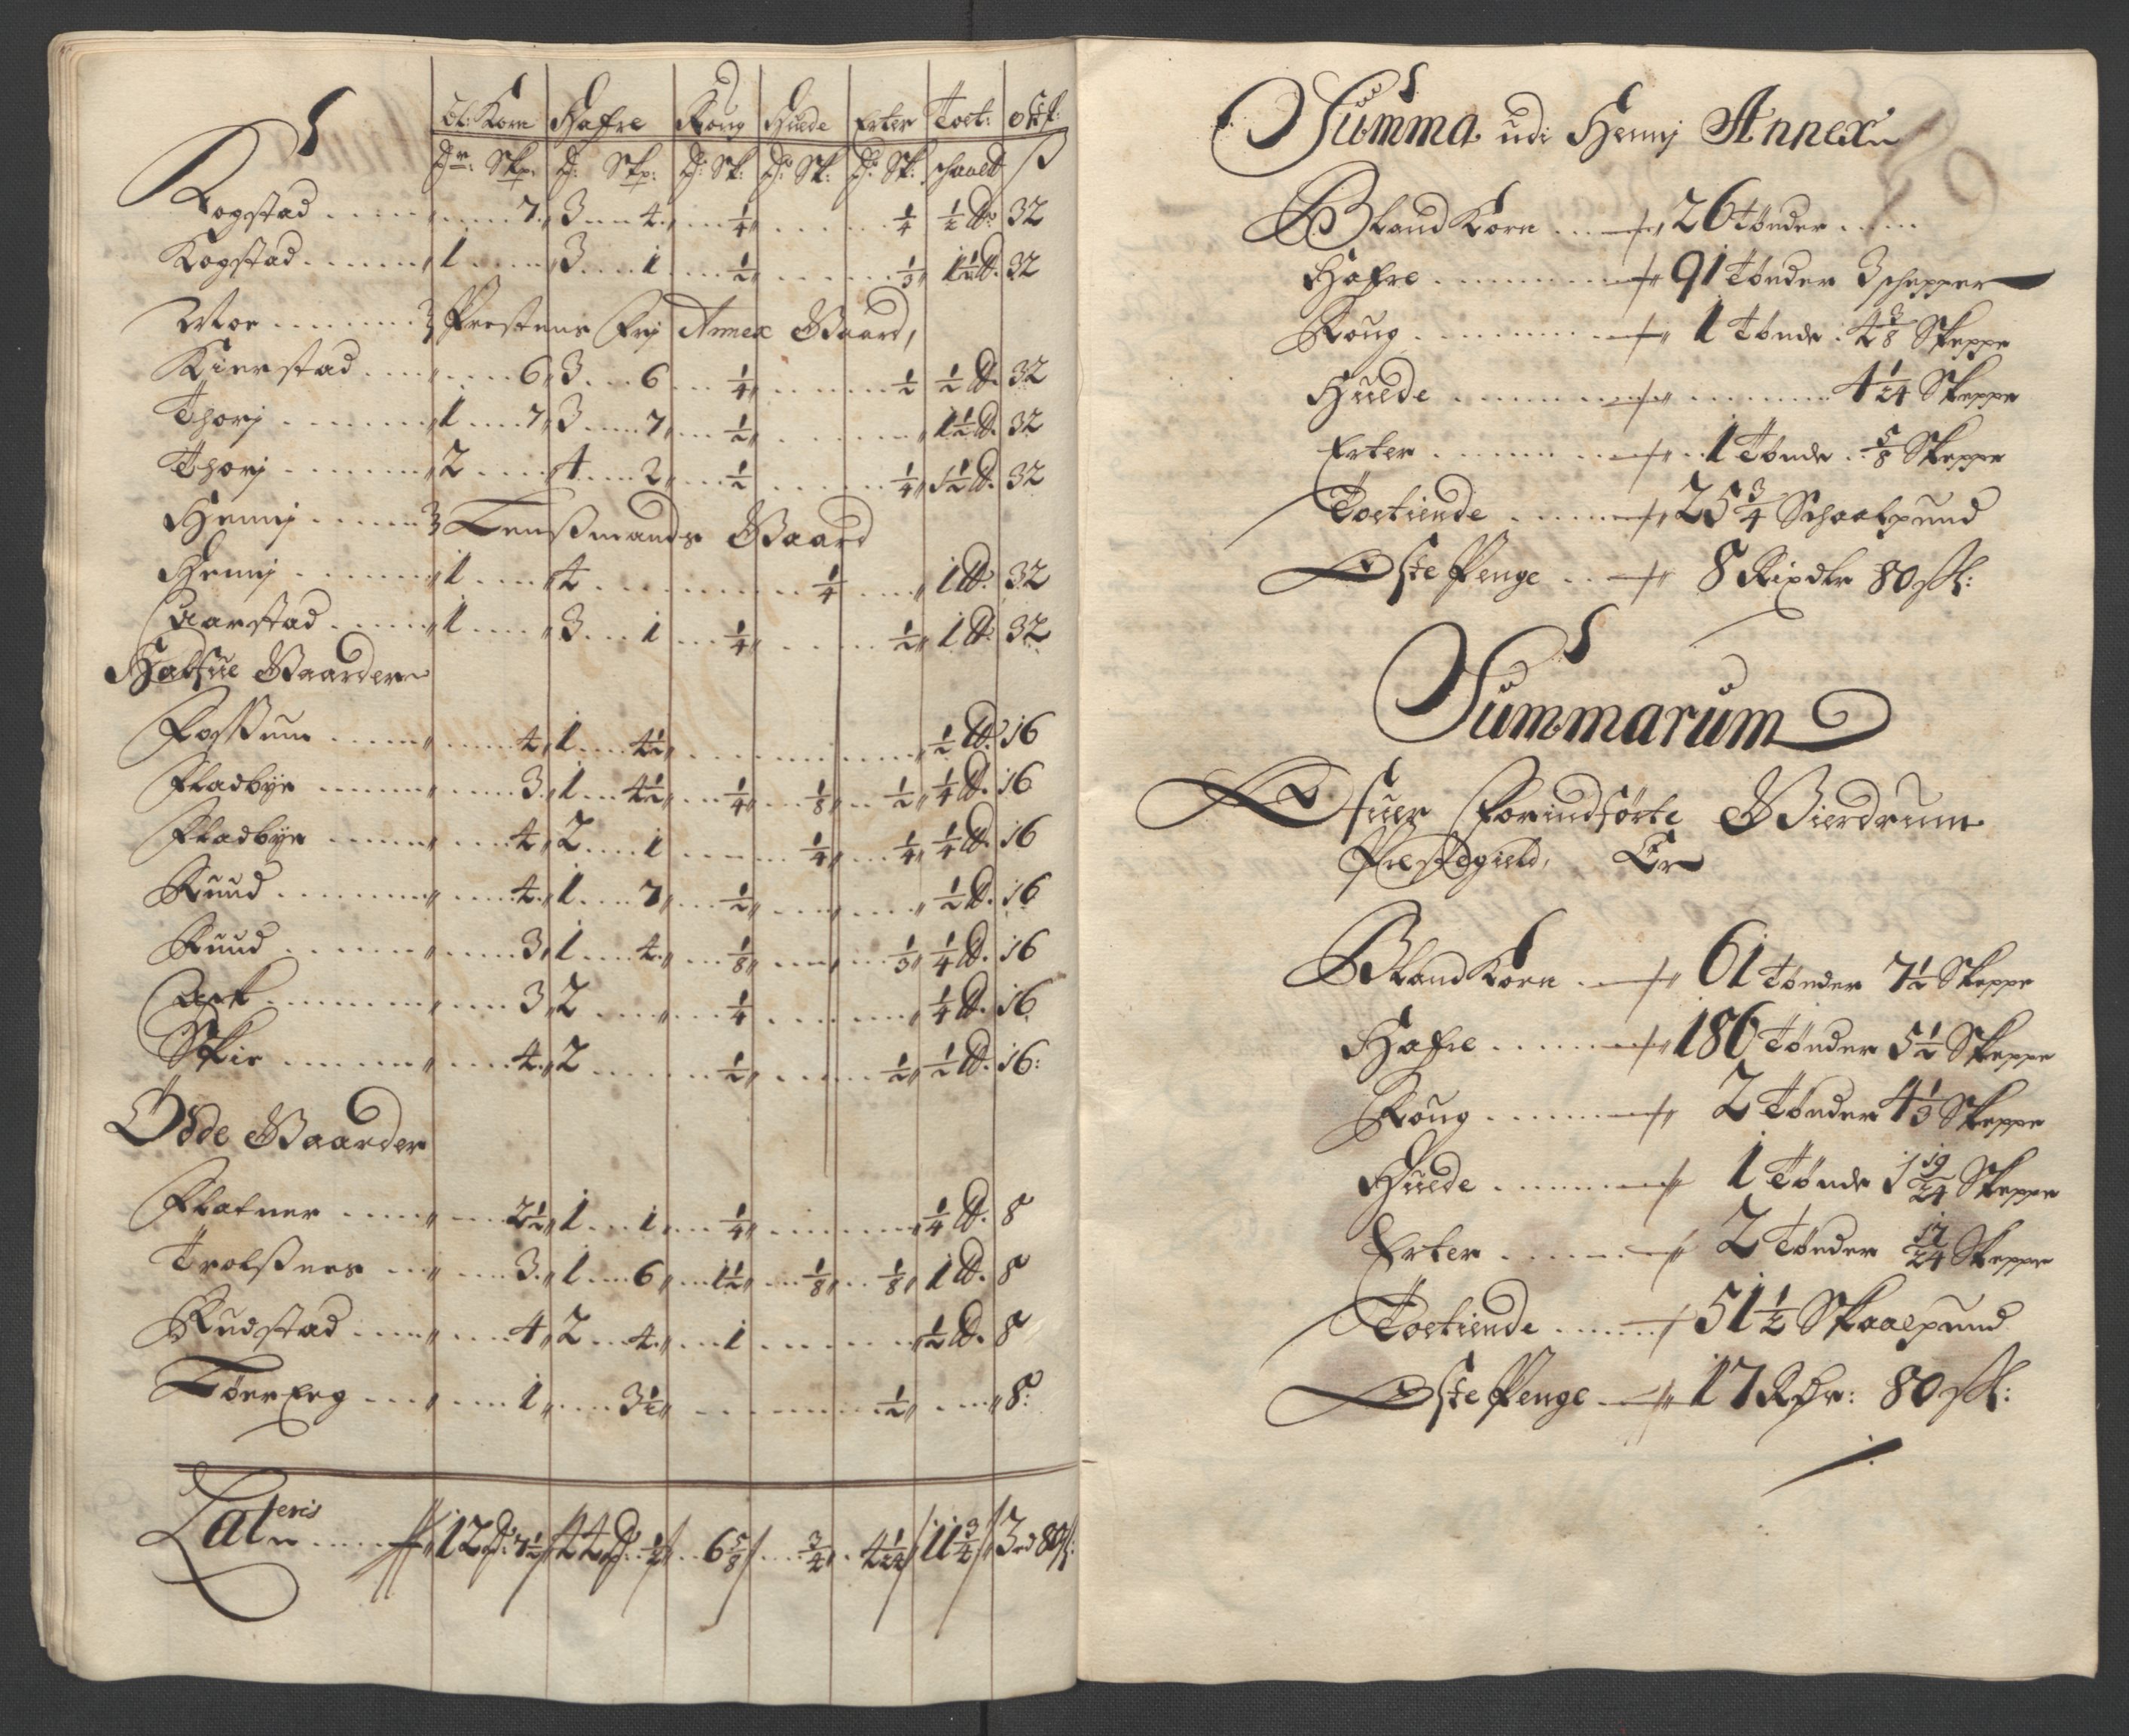 Bl: Korn Hafre Roug Huede Erter Toet: Ost:
Tr: Skp: T: Skp: T: Sk: T: Sk: T: Sk: schaalt ß
Rogstad ..... 7 3 .. 4 .. 1/4 ..... 1/4 1/2 tt. 32
Kogstad ..... 1 .. 3 .. 1 .. 1/2 ..... 1/3 1 1/2 tt. 32
Moe ..... Prestens Frj Annex Gaard,
Kierstad ..... 6 3 .. 6 .. 1/4 ..... 1/2 1/2 tt. 32
Thorj ..... 1 .. 7 3 .. 7 .. 1/2 ..... 1 1/2 tt. 32
Thorj ..... 2 .. 4 .. 2 .. 1/2 ..... 1/4 1 1/2 tt. 32
Hennj ..... Lenßmands Gaard
Hennj ..... 1 .. 4 ..... 1/4 .. 1 tt. 32
Aarstad ..... 1 .. 3 .. 1 .. 1/4 ..... 1/2 1 tt. 32
Halfue Gaarder
Fossum ..... 4 1 .. 4 1/2 ..... 1/2 tt. 16
Fladbye ..... 3 1 .. 4 1/2 .. 1/4 .. 1/8 .. 1/2 1/4 tt. 16
Fladbye ..... 4 2 .. 1 ..... 1/4 .. 1/4 1/4 tt. 16
Ruud ..... 4 1 .. 7 .. 1/2 ..... 1/2 tt. 16
Ruud ..... 3 1 .. 4 .. 1/8 ..... 1/3 1/4 tt. 16
Ask ..... 3 2 ..... 1/4 ..... 1/4 tt. 16
Skie ..... 4 2 ..... 1/2 ..... 1/2 1/2 tt. 16:
Øde Gaarder
Flatner ..... 2 1/2 1 .. 1 .. 1/4 ..... 1/4 tt. 8
Trolßnes ..... 3 1 .. 6 .. 1 1/2 .. 1/8 .. 1/8 1 tt. 8
Rudstad ..... 4 2 .. 4 .. 1 ..... 1/2 tt. 8
Tøereeg ..... 1 .. 3 1/2 ..... 1/2 .. 8:
Lateris ..... 12 T: 7 1/2 44 T: 1/2 .. 6 5/8 .. 3/4 .. 4 1/24 11 3/4 3 rd 80 ß:
Summa udi Hennj Annex
Bland Korn ..... 26 tønder .....
Hafre ..... 91 Tønder 3 schepper
Roug ..... 1 Tønde 4 3/8 Skeppe
Huede ..... 4 1/24 Skeppe
Erter ..... 1 Tønde 5/8 Skeppe
Toetiende ..... 25 3/4 Schaalpund
Oste Penge ..... 8 Rixdlr 80 ß:
Summarum
Ofuer Forindførte Gierdrum
Prestegield, Er
Bland Korn ..... 61 Tønder 7 1/2 Skeppe
Hafre ..... 186 Tønder 5 1/2 Skeppe
Roug ..... 2 Tønder 4 1/3 Skeppe
Huede ..... 1 Tønde 1 19/24 Skeppe
Erter ..... 2 Tønder 17/24 Skeppe
Toetiende ..... 51 1/2 Skaalpund
Oste Penge ..... 17 Rdr: 80 ß: